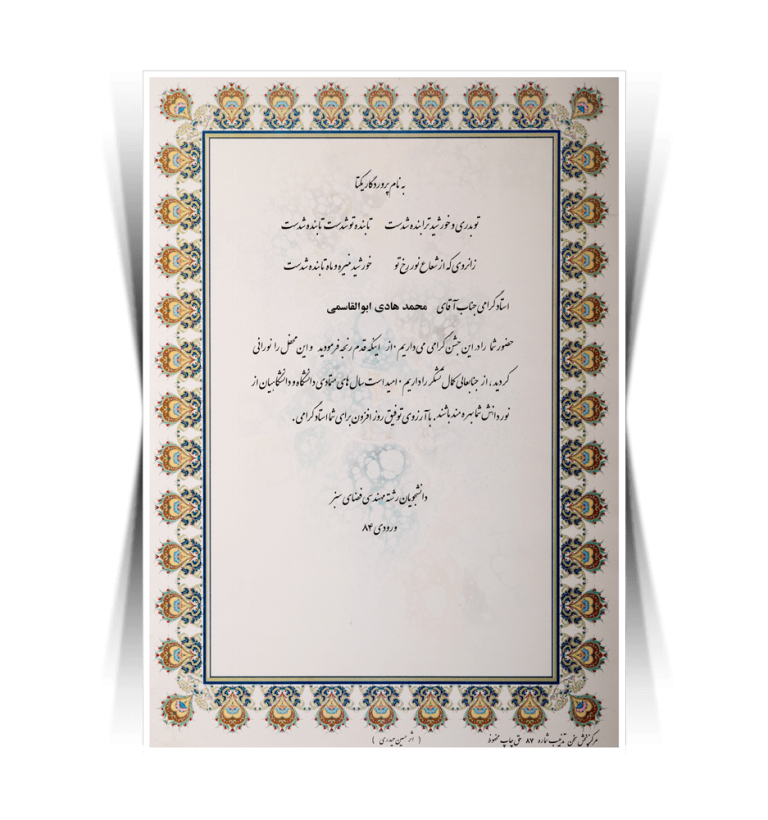 به نام پروردگار یکتا
تو بدری و خورشید ترا بنده شدست تا بنده تو شدست تابنده شدست
زانروی که از شعاع نور رخ تو خورشید منیر و ماه تابنده شدست
استاد گرامی جناب آقای محمد هادی ابوالقاسمی
حضور شما را در این جشن گرامی می داریم. از اینکه قدم رنجه فرمودید و این محفل را نورانی
کردید، از جنابعالی کمال تشکر را داریم. امید است سال های متمادی دانشگاه و دانشگاهیان از
نور دانش شما بهره مند باشند. با آرزوی توفیق روز افزون برای شما استاد گرامی.
دانشجویان رشته مهندسی فضای سبز
ورودی ۸۴
مرکز پخش سخن تذهیب شماره ۸۷ حق چاپ محفوظ ( اثر حسین حیدری )